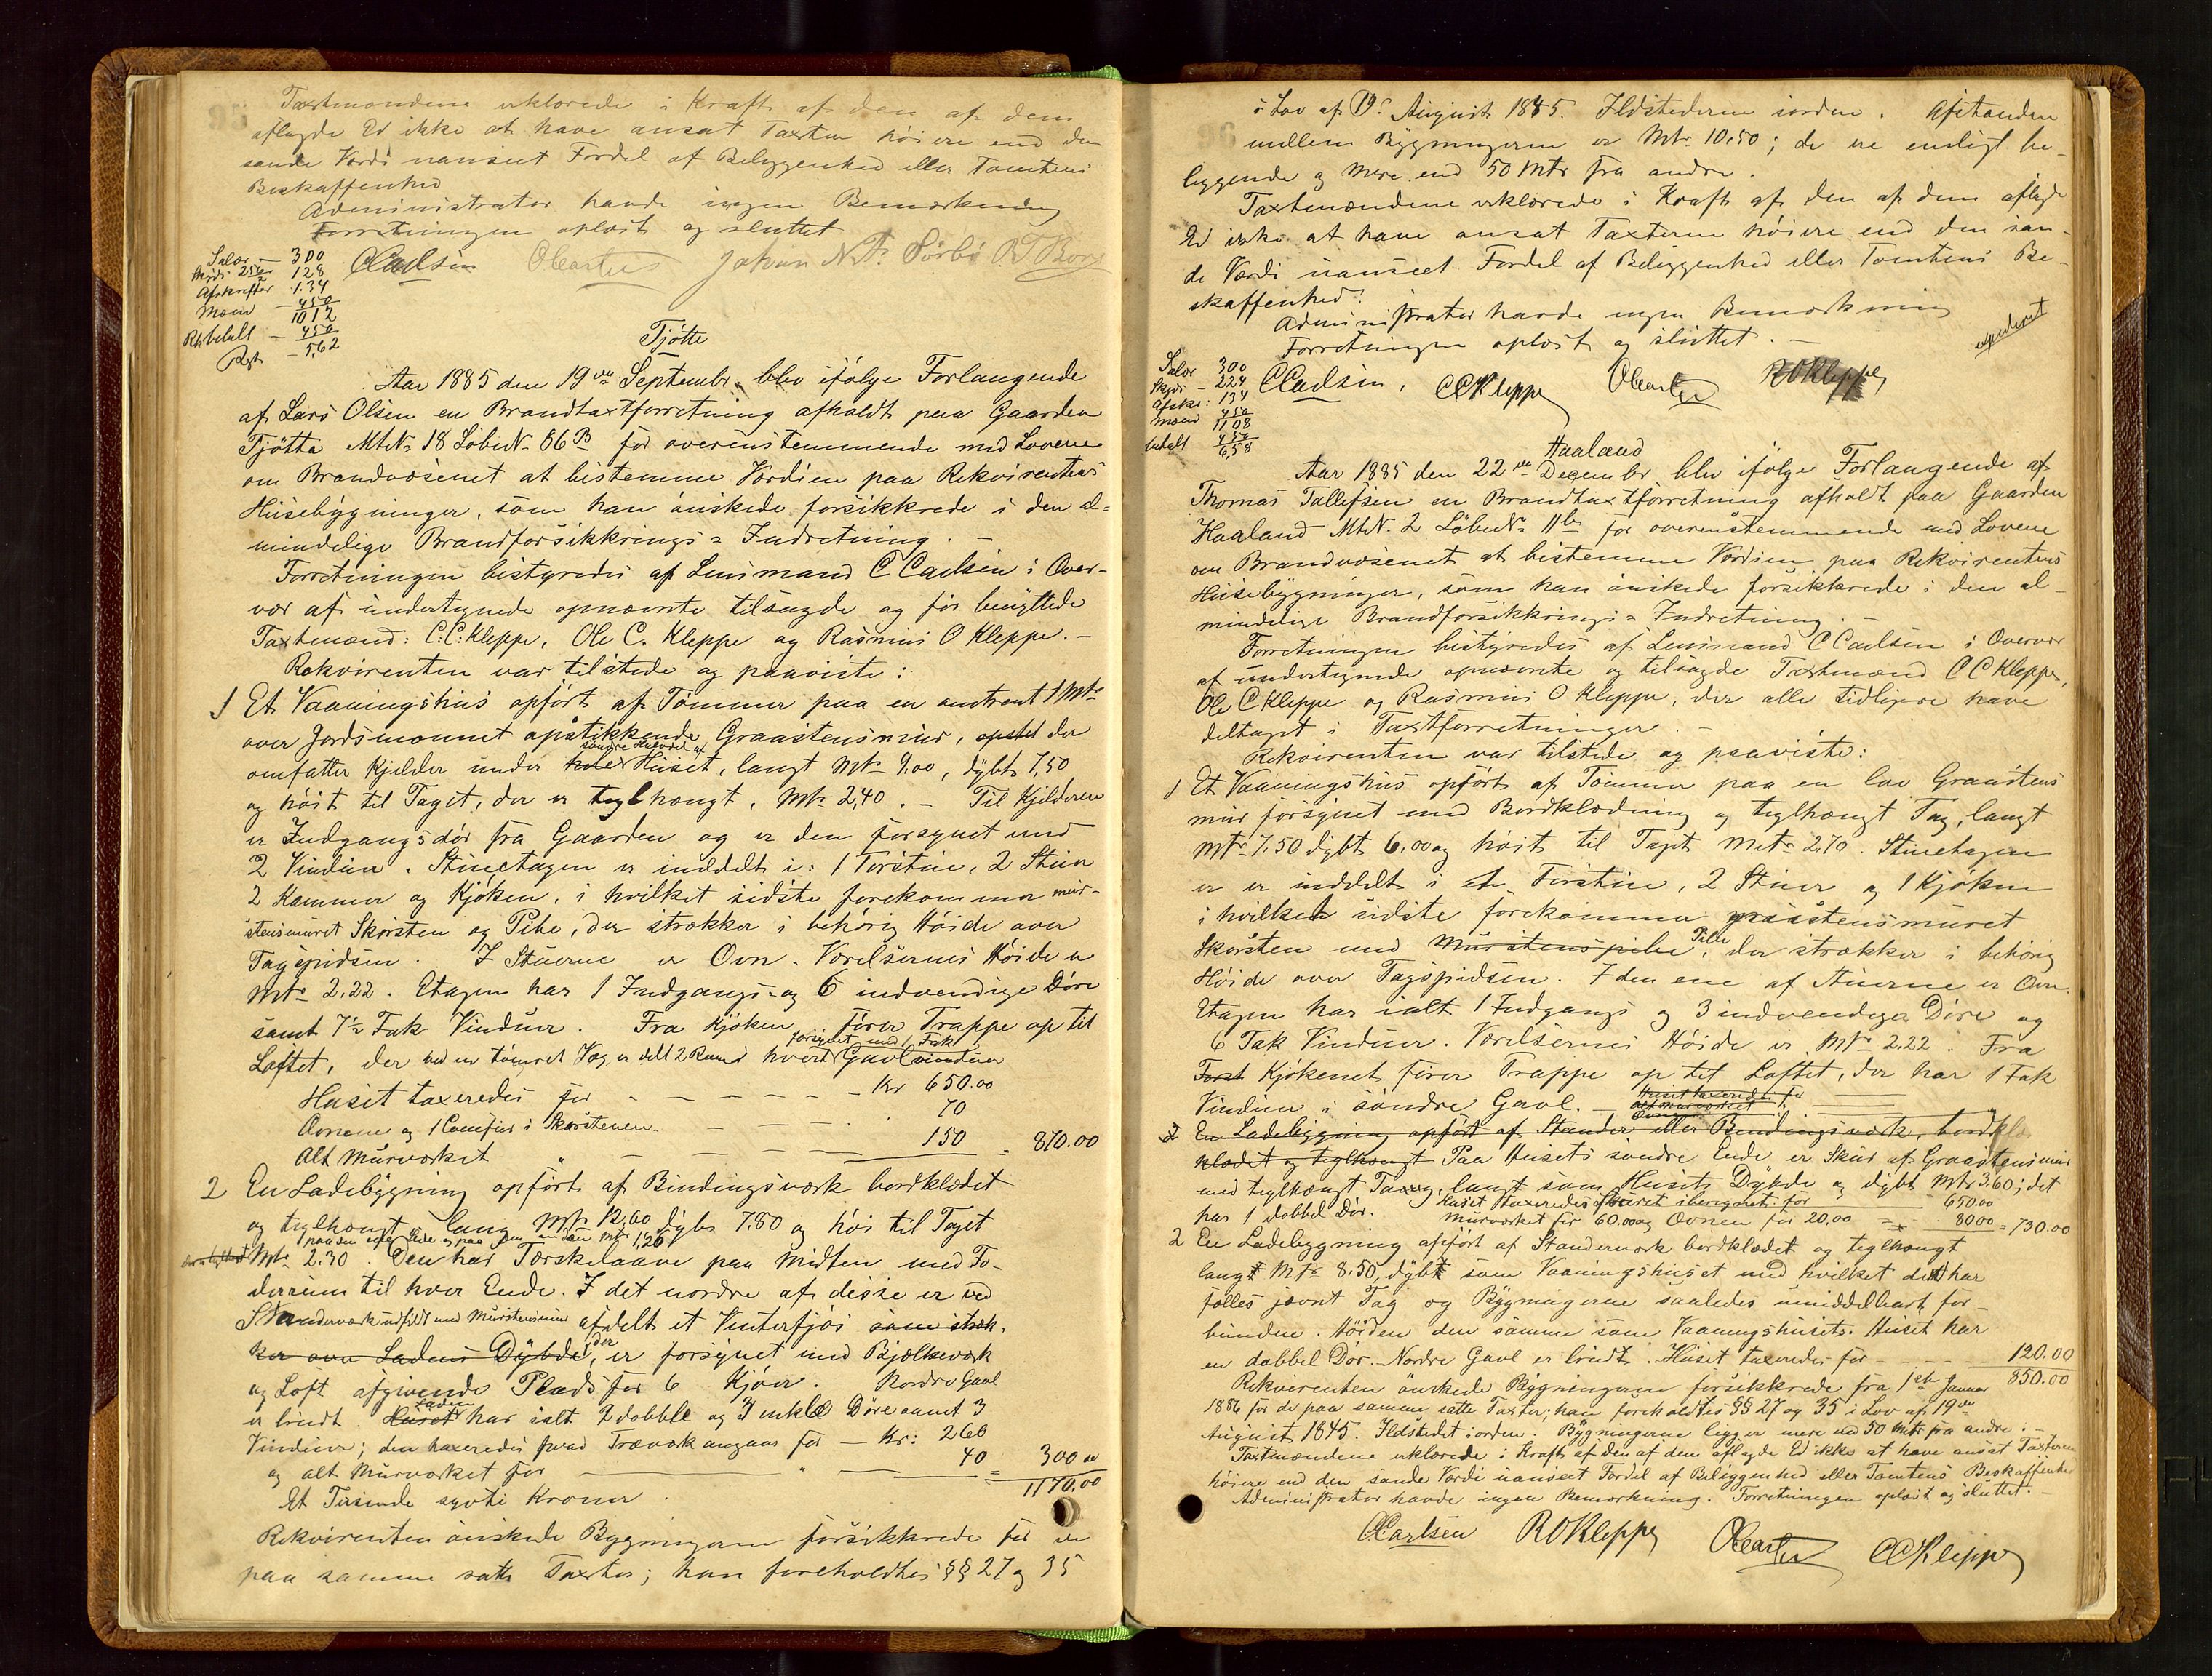 Taxtmændene erklærede i Kraft af den af dem
aflagde Ed ikke at have ansat Taxten høiere end den
sande Værdi uanseet Fordel af Beliggenhed eller Tomtens
Beskaffenhed
Administrator havde ingen Bemærkning
Forretningen oplæst og sluttet
CCarlsen OCarlsen Johan N. F. Sørbø O T Bore
Salær — 300
Skyds 256/2 128
Afskrifter 1.34
Mænd — 450
1012
Rk betalt — 450
Rest — 5,62
Tjøtte
Aar 1885 den 19de Septembr. blev ifølge Forlangende
af Lars Olsen en Brandtaxtforretning afholdt paa Gaarden
Tjøtta Mt.N. 18 LøbeN. 86B for overenstemmende med Lovene
om Brandvæsenet at bestemme Værdien paa Rekvirentens
Husebygninger, som han ønskede forsikkrede i den al-
mindelige Brandforsikkrings=Indretning. —
Forretningen bestyredes af Lensmand C Carlsen i Over-
vær af undertegnede opnævnte tilsagde og før benyttede
Taxtmænd: C.C. Kleppe, Ole C. Kleppe og Rasmus O Kleppe. —
Rekvirenten var tilstede og paaviste:
1 Et Vaaningshus opført af Tømmer paa en omtrent 1 Mtr
over Jordsmonnet opstikkende Graastensmur, opstel der
omfatter Kjelder under hele søndre Halvdel af Huset, langt Mtr 9,00, dybt 7,50
og høit til Taget, der er teglhængt, Mtr 2,40. — Til Kjelderen
er Indgangsdør fra Gaarden og er den forsynet med
2 Vinduer. Stuetagen er inddelt i: 1 Forstue, 2 Stuer
2 Kammer og Kjøken, i hvilket sidste forekommer mur-
stensmuret Skorsten og Pibe, der strækker i behørig Høide over
Tagspidsen. I Stuerne er Ovn. Værelsernes Høide er
Mtr 2,22. Etagen har 1 Indgangs- og 6 indvendige Døre
samt 7½ Fak Vinduer. Fra Kjøken fører Trappe op til
Loftet, der ved en tømret Væg er delt 2 Rum hvert forsynet med 1 Fak Gavlvinduer
Huset taxeredes for — — — — Kr 650.00
Ovnene og 1 Comfur i Skorstenen — — — 70
Alt Murværket " — — — — 150 = 870.00
2 En Ladebygning opført af Bindingsværk bordklædet
og teglhængt, lang Mtr 12,60 dybt 7.80 og høi til Taget
Mtr 2.30 paa den ene Side og paa den anden Mtr 1,20. Den har Tærskelaave paa Midten med Fo-
derrum til hver Ende. I det nordre af disse er ved
Standerværk udfyldt med Murstensmur afdelt et Vinterfjøs som stræk-
ker over Ladens Dybde, der er forsynet med Bjælkeværk
og Loft afgivende Plads for 6 Kjøer. Nordre Gavl
er blindt. Huset Laden har ialt 2 dobble og 3 enkle Døre samt 3
Vinduer; den taxeredes hvad Træværk angaar for — Kr: 260
og alt Murværket for — " — 40 = 300 00
Et Tusinde sytti Kroner. 1170.00
Rekvirenten ønskede Bygningerne forsikkrede for de
paa samme satte Taxter; han foreholdtes §§ 27 og 35
i Lov af 19de August 1845. Ildstederne iorden. Afstanden
mellem Bygningerne er Mtr. 10,50; de ere ensligt be-
liggende og mere end 50 Mtr fra andre.
Taxtmændene erklærede i Kraft af den af dem aflagde
Ed ikke at have ansat Taxterne høiere end den san-
de Værdi uanseet Fordel af Beliggenhed eller Tomtens Be-
skaffenhed.
Administrator havde ingen Bemærkning
Forretningen oplæst og sluttet. —
expederet
CCarlsen, CCKleppe OCarlsen ROKleppe
Salær 300
Skyds — 224
Afskr: 134
Mænd 450
1108
betalt 450
6,58
Haaland
Aar 1885 den 22de Decembr blev ifølge Forlangende af
Thomas Tollefsen en Brandtaxtforretning afholdt paa Gaarden
Haaland Mt.N. 2 LøbeN. 11b for overenstemmende med Lovene
om Brandvæsenet at bestemme Værdien paa Rekvirentens
Husebygninger, som han ønskede forsikkrede i den al-
mindelige Brandforsikkrings=Indretning. —
Forretningen bestyredes af Lensmand C Carlsen i Overvær
af undertegnede opnævnte og tilsagde Taxtmænd C C Kleppe,
Ole C Kleppe og Rasmus O Kleppe, der alle tidligere have
deltaget i Taxtforretninger. —
Rekvirenten var tilstede og paaviste:
1 Et Vaaningshus opført af Tømmer paa en lav Graastens
mur forsynet med Bordklædning og teglhængt Tag, langt
Mtr. 7.50 dybt 6.00 og høit til Taget Mtr 2.70. Stuetagen
er er inddelt i et Forstue, 2 Stuer og 1 Kjøken
i hvilket sidste forekommer graastensmuret
Skorsten med Murstenspibe Pibe, der strækker i behørig
Høide over Tagspidsen. I den ene af Stuerne er Ovn.
Etagen har ialt 1 Indgangs og 3 indvendige Døre og
6 Fak Vinduer. Værelsernes Høide er Mtr 2,22. Fra
Forst Kjøkenet fører Trappe op til Loftet, der har 1 Fak
Vindue i søndre Gavl. — Huset taxeredes for
Alt Murværket
Ovnen
2 En Ladebygning opført af Stander eller Bindingsværk, bordk
klædet og teglhængt Paa Husets søndre Ende er Skur af Graastensmur
med teglhængt Tag, langt som Husets Dybde og dybt Mtr 3.60; det
har 1 dobbel Dør. Huset taxeredes Skuret iberegnet for 650.00
Murværket for 60.00 og Ovnen for 20,00 — 80 00 = 730.00
2 En Ladebygning opført af Standerværk bordklædet og teglhængt
langt Mtr 8.50, dybt som Vaaningshuset med hvilket det har
fælles jævnt Tag og Bygningerne saaledes umiddelbart for-
bundne. Høiden den samme som Vaaningshusets. Huset har
en dobbel Dør. Nordre Gavl er blindt. Huset taxeredes for — 120.00
850.00
Rekvirenten ønskede Bygningerne forsikkrede fra 1ste Januar
1886 for de paa samme satte Taxter; han foreholdtes §§ 27 og 35 i Lov af 19de
August 1845. Ildstedet iorden. Bygningerne ligger mere end 50 Mtr fra andre. —
Taxtmændene erklærede i Kraft af den af dem aflagde Ed ikke at have ansat Taxterne
høiere end den sande Værdi uanseet Fordel af Beliggenhed eller Tomtens Beskaffenhed
Administrator havde ingen Bemærkning. Forretningen oplæst og sluttet. —
CCarlsen ROKleppe OCarlsen CCKleppe